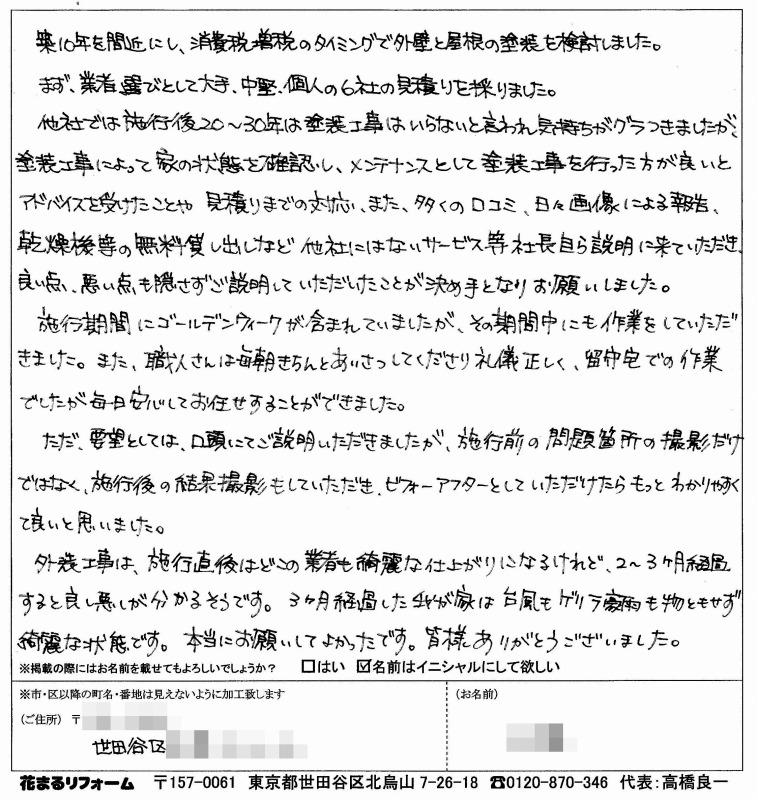 築10年を間近にし、消費税増税のタイミングで外壁と屋根の塗装を検討しました。
まず、業者選びとして大手、中堅、個人の6社の見積りを採りました。
他社では施行後20～30年は塗装工事はいらないと言われ気持ちがグラつきましたが、
塗装工事によって家の状態を確認し、メンテナンスとして塗装工事を行った方が良いと
アドバイスを受けたことや 見積りまでの対応、また、多くの口コミ、日々画像による報告、
乾燥機等の無料貸し出しなど 他社にはないサービス等社長自ら説明に来ていただき、
良い点、悪い点も隠さずご説明していただいたことが決め手となりお願いしました。
施行期間にゴールデンウィークが含まれていましたが、その期間中にも作業をしていただ
きました。また、職人さんは毎朝きちんとあいさつしてくださり礼儀正しく、留守宅での作業
でしたが毎日安心してお任せすることができました。
ただ、要望としては、口頭にてご説明いただきましたが、施行前の問題箇所の撮影だけ
ではなく、施行後の結果撮影もしていただき、ビフォーアフターとしていただけたらもっとわかりやすく
て良いと思いました。
外装工事は、施行直後はどこの業者も綺麗な仕上がりになるけれど、2～3ヶ月経過
すると良し悪しが分かるそうです。3ヶ月経過した我が家は台風もゲリラ豪雨も物ともせず
綺麗な状態です。本当にお願いしてよかったです。皆様ありがとうございました。
※掲載の際にはお名前を載せてもよろしいでしょうか？ □はい ☑名前はイニシャルにして欲しい
※市・区以降の町名・番地は見えないように加工致します
（お名前）
（ご住所）〒
世田谷区
花まるリフォーム 〒157-0061 東京都世田谷区北烏山 7-26-18 ☎0120-870-346 代表：高橋良一